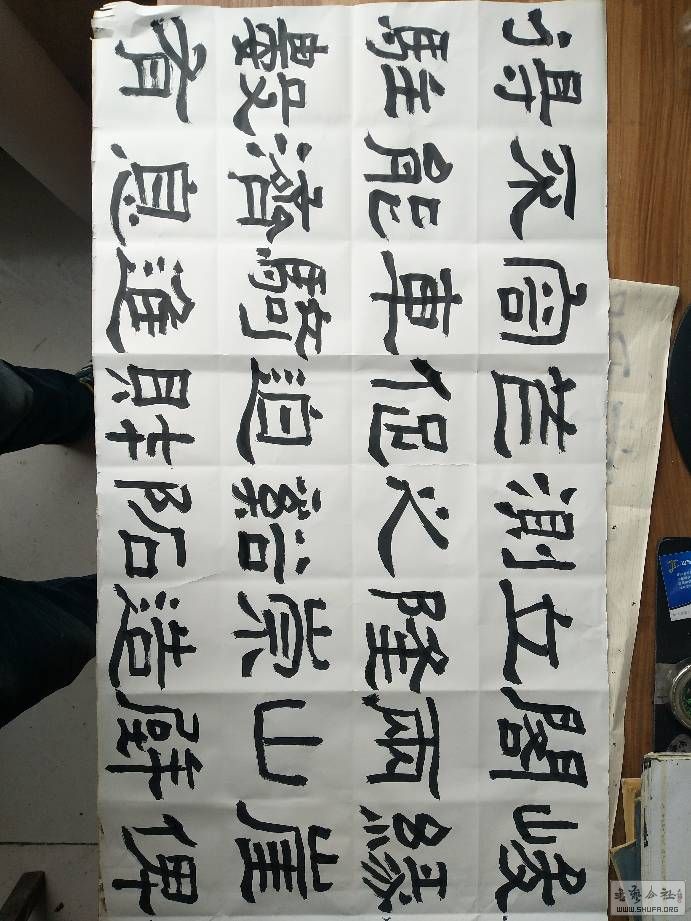 峻緣崖俾
閣兩山壁
立隆崇造
測之谿阨
芲促迫財
容車騎進
不能濟息
得駐數有
WWW.SHUFA.ORG